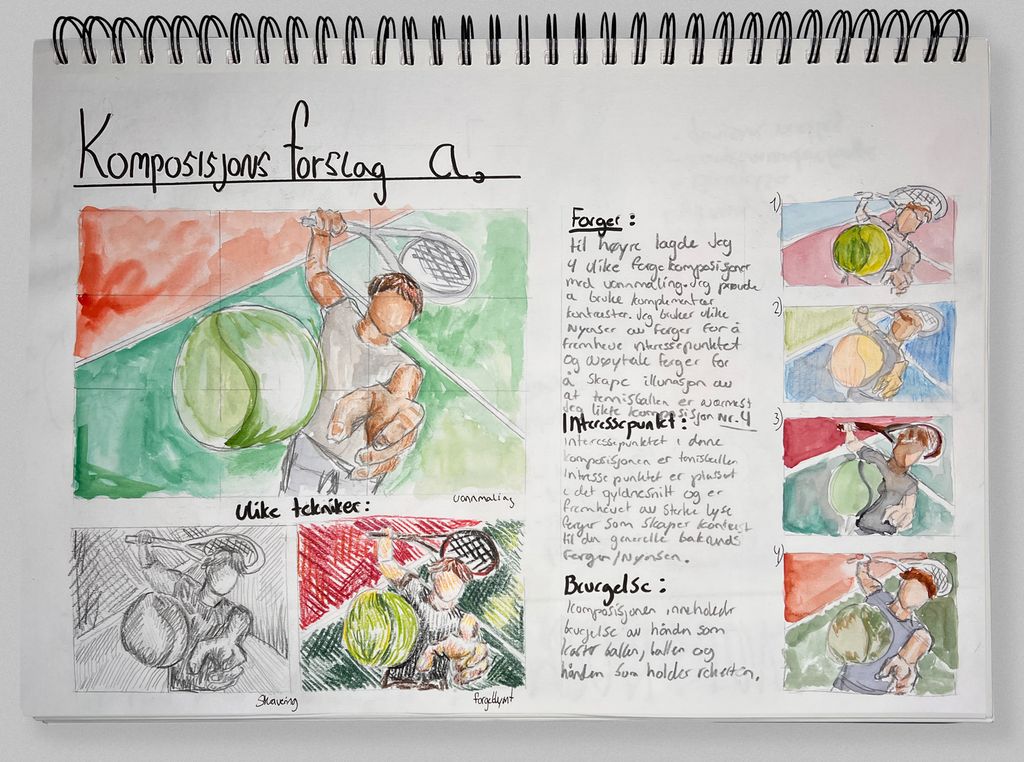 Komposisjons forslag a.
vannmaling
Ulike tekniker:
Skravering
fargeklymt
Farger:
til høyre lagde jeg
4 ulike fargekomposisjoner
med vannmaling. Jeg prøvde
å bruke komplementær
kontraster. Jeg bruker ulike
Nyanser av farger for å
fremheve interessepunktet
og avsøytale farger for
å skape illunasjon av
at tennisballen er nærmest
Jeg likte komposisjon nr. 4
Interessepunktet:
Interessepunktet i denne
komposisjonen er tenisballen
Interesse punktet er plassert
i det gyldnesnitt og er
fremhevet av sterke lyse
farger som skaper kontrast
til den generelle bakgrunds
Fargen/Nyansen.
Bevegelse:
Komposisjonen inneholder
bevgelse av hånden som
kaster ballen, ballen og
hånden som holder rcketten.
1)
2)
3)
4)